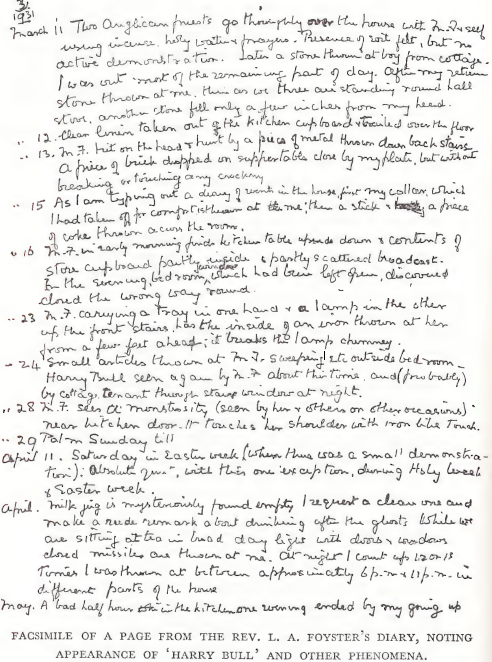 31
1931
March 11 Two Anglican priests go thoroughly over the house with M.F. & self
using incense, holy water & prayers. Presence of evil felt, but no
active demonstration. Later a stone thrown at boy from cottage.
I was out most of the remaining part of day. After my return
stone thrown at me, then as we three are standing round hall
stove, another stone fell only a few inches from my head.
" 12. Clean linen taken out of the kitchen cupboard & trailed over the floor
" 13. M.F. hit on the head & hurt by a piece of metal thrown down back stairs
A piece of brick dropped on supper table close by my plate, but without
breaking or touching any crockery
" 15 As I am typing out a diary of events in the house, first my collar, which
I had taken off for comfort is thrown at me; then a stick & a piece
of coke thrown across the room.
" 16 M.F. in early morning finds kitchen table upside down & contents of
store cupboard partly inside & partly scattered broadcast.
In the evening bedroom window which had been left open, discovered
closed the wrong way round.
" 23 M.F. carrying a tray in one hand & a lamp in the other
up the front stairs, has the inside of an iron thrown at her
from a few feet ahead; it breaks the lamp chimney.
" 24 Small articles thrown at M.F. sweeping etc outside bedroom
Harry Bull seen again by M.F. about this time, and (probably)
by cottage tenant through stairs window at night.
" 28 M.F. sees a monstrosity (seen by her & others on other occasions)
near kitchen door. It touches her shoulder with iron like touch.
" 29 Palm Sunday till
April 11. Saturday in Easter week (when there was a small demonstra-
tion): Absolute quiet, with this one exception, during Holy Week
& Easter week.
April. Milk jug is mysteriously found empty, I request a clean one and
make a rude remark about drinking after the ghosts While we
are sitting at tea in broad day light with doors & windows
closed missiles are thrown at me. At night I count up 12 or 13
times I was thrown at between approximately 6 p.m. & 11 p.m. in
different parts of the house
May. A bad half hour in the kitchen one evening ended by my going up
FACSIMILE OF A PAGE FROM THE REV. L. A. FOYSTER'S DIARY, NOTING
APPEARANCE OF 'HARRY BULL' AND OTHER PHENOMENA.